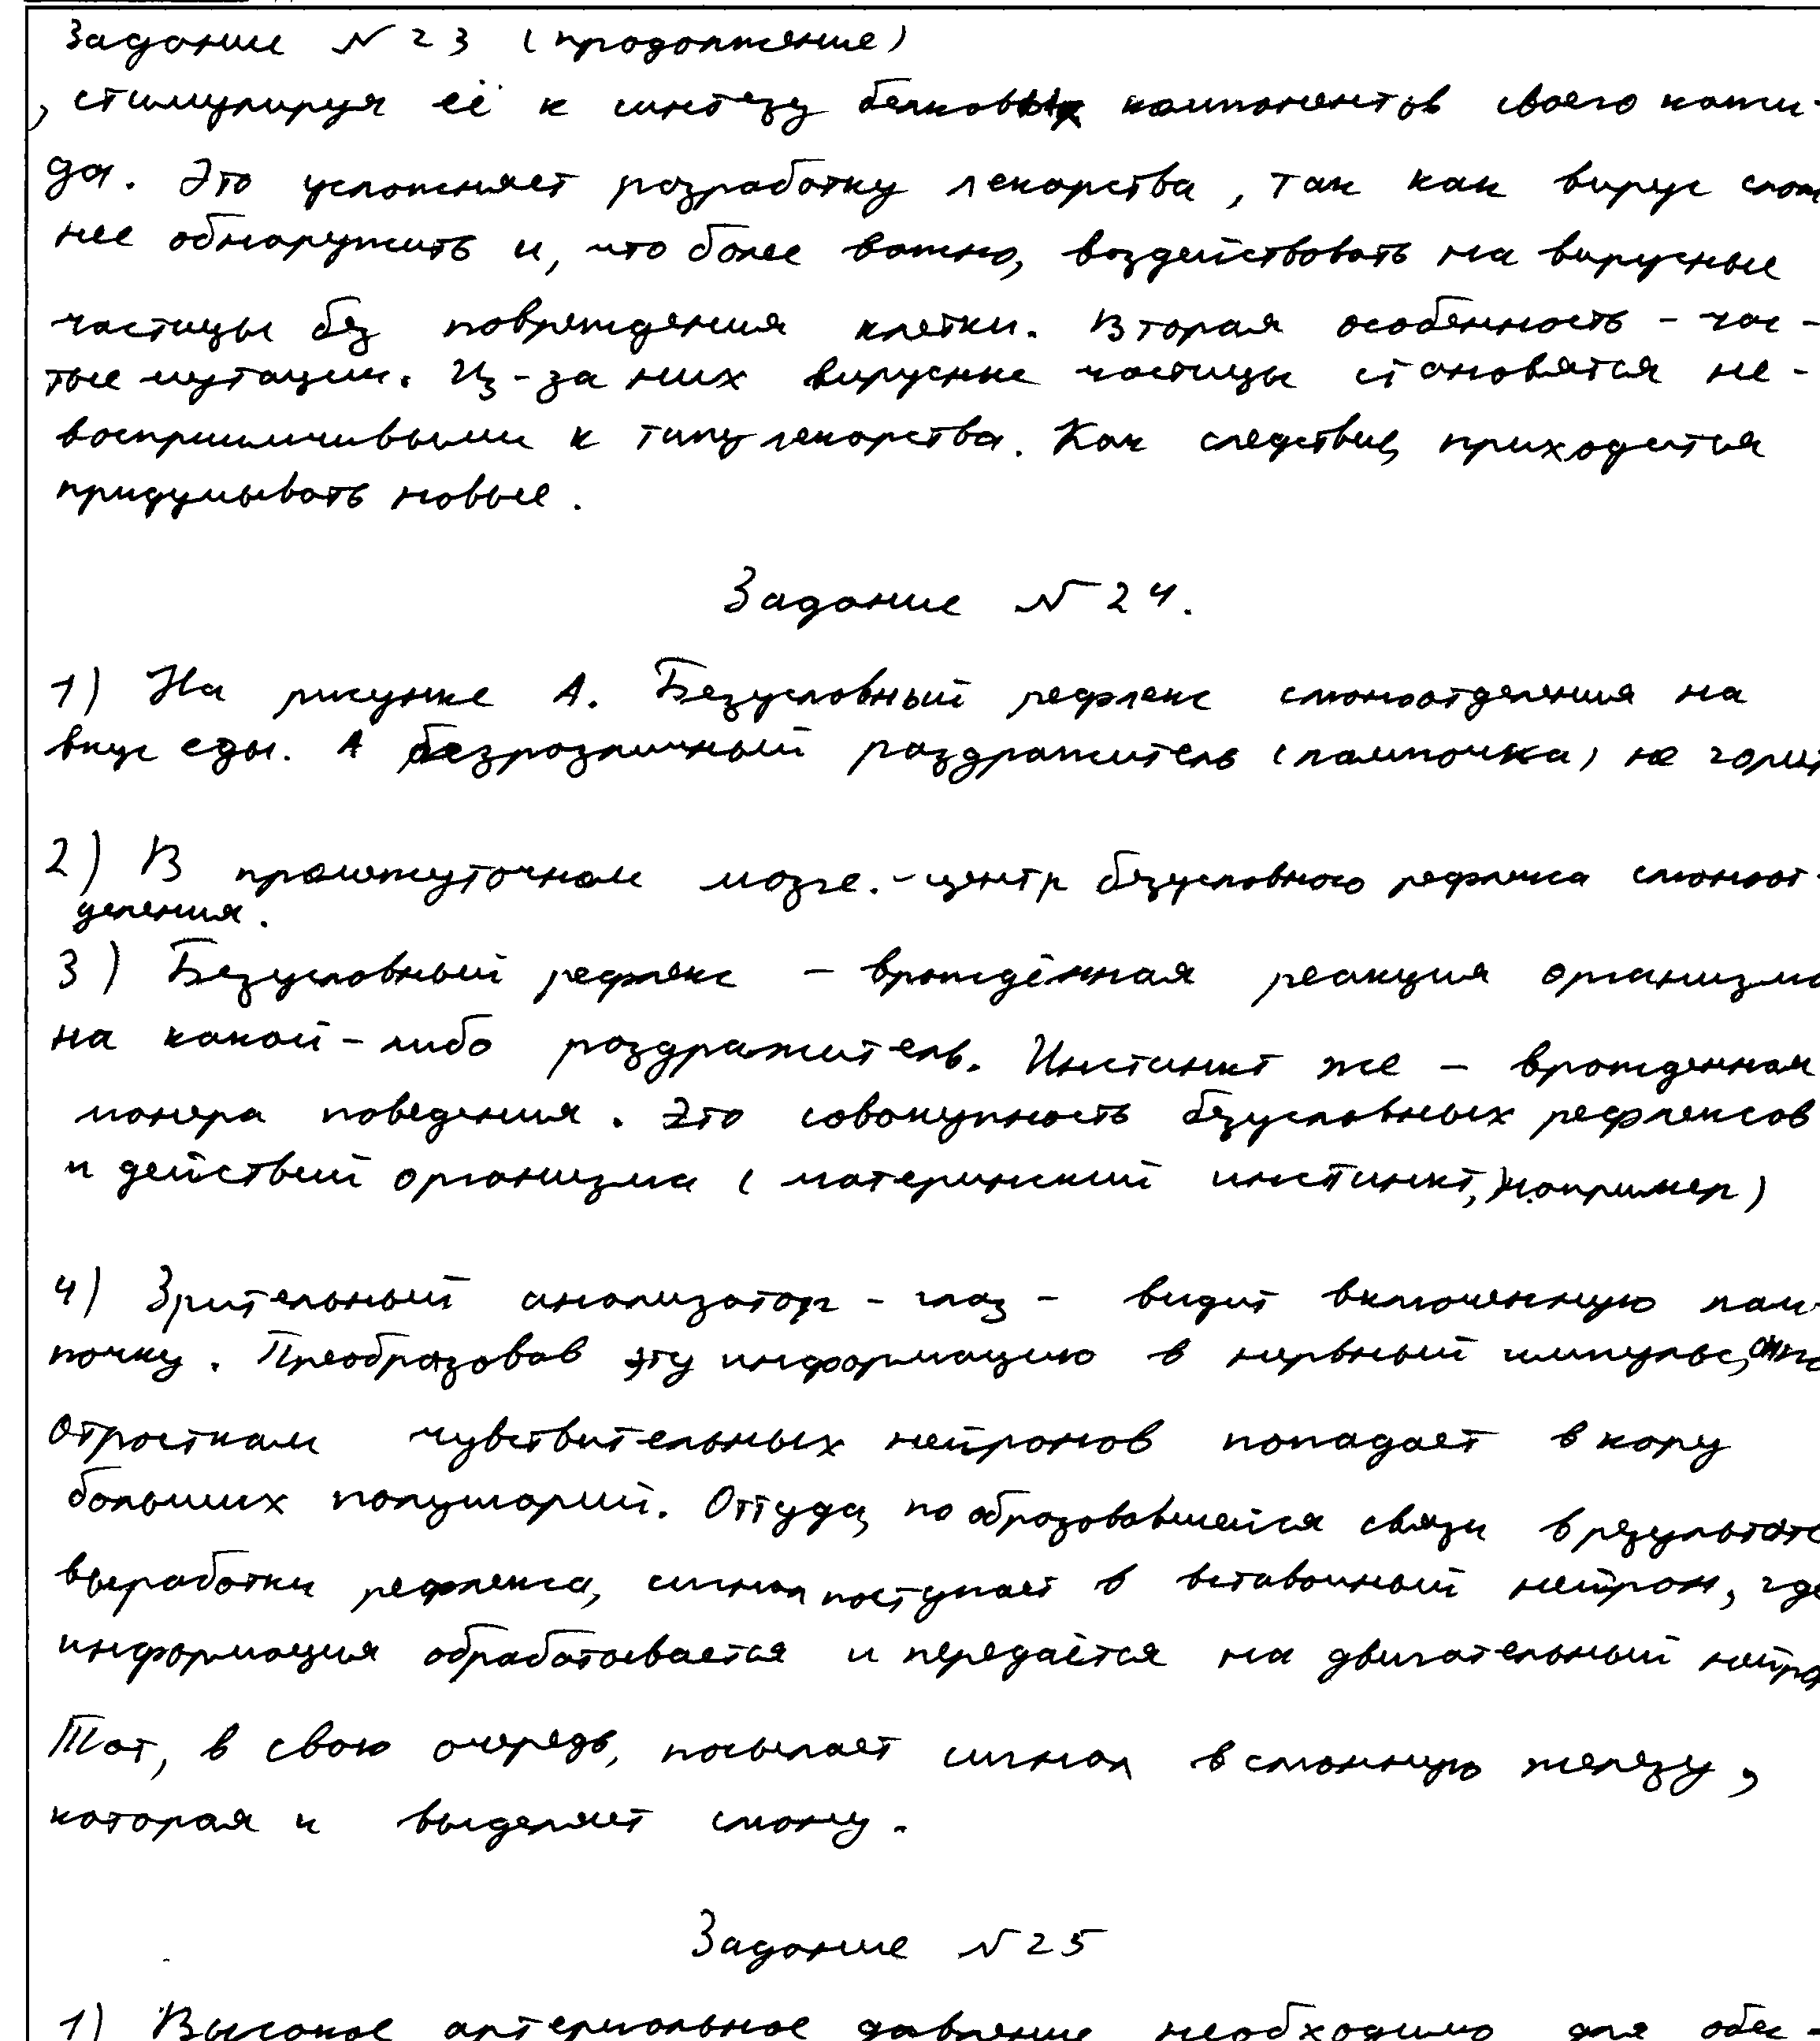 Задание №23 (продолжение)
, стимулируя её к синтезу белковых компонентов своего капси-
да. Это усложняет разработку лекарства, так как вирус слож
нее обнаружить и, что более важно, воздействовать на вирусные
частицы без повреждения клетки. Вторая особенность - час-
тые мутации. Из-за них вирусные частицы становятся не-
восприимчивыми к типу лекарства. Как следствие, приходится
придумывать новые.
Задание №24.
1) На рисунке А. Безусловный рефлекс слюноотделения на
вкус еды. А безразличный раздражитель (лампочка) не горит
2) В промежуточном мозге. - центр безусловного рефлекса слюноот-
деления.
3) Безусловный рефлекс - врождённая реакция организма
на какой-либо раздражитель. Инстинкт же - врожденная
манера поведения. Это совокупность безусловных рефлексов
и действий организма (материнский инстинкт, например)
4) Зрительный анализатор - глаз - видит включенную лам-
почку. Преобразовав эту информацию в нервный импульс,
отросткам чувствительных нейронов попадает в кору
больших полушарий. Оттуда, по образовавшейся связи в результате
выработки рефлекса, сигнал поступает в вставочный нейрон, где
информация обрабатывается и передаётся на двигательный нейро
Тот, в свою очередь, посылает сигнал в слюнную железу,
которая и выделяет слюну.
Задание №25
1) Высокое артериальное давление необходимо для обес-